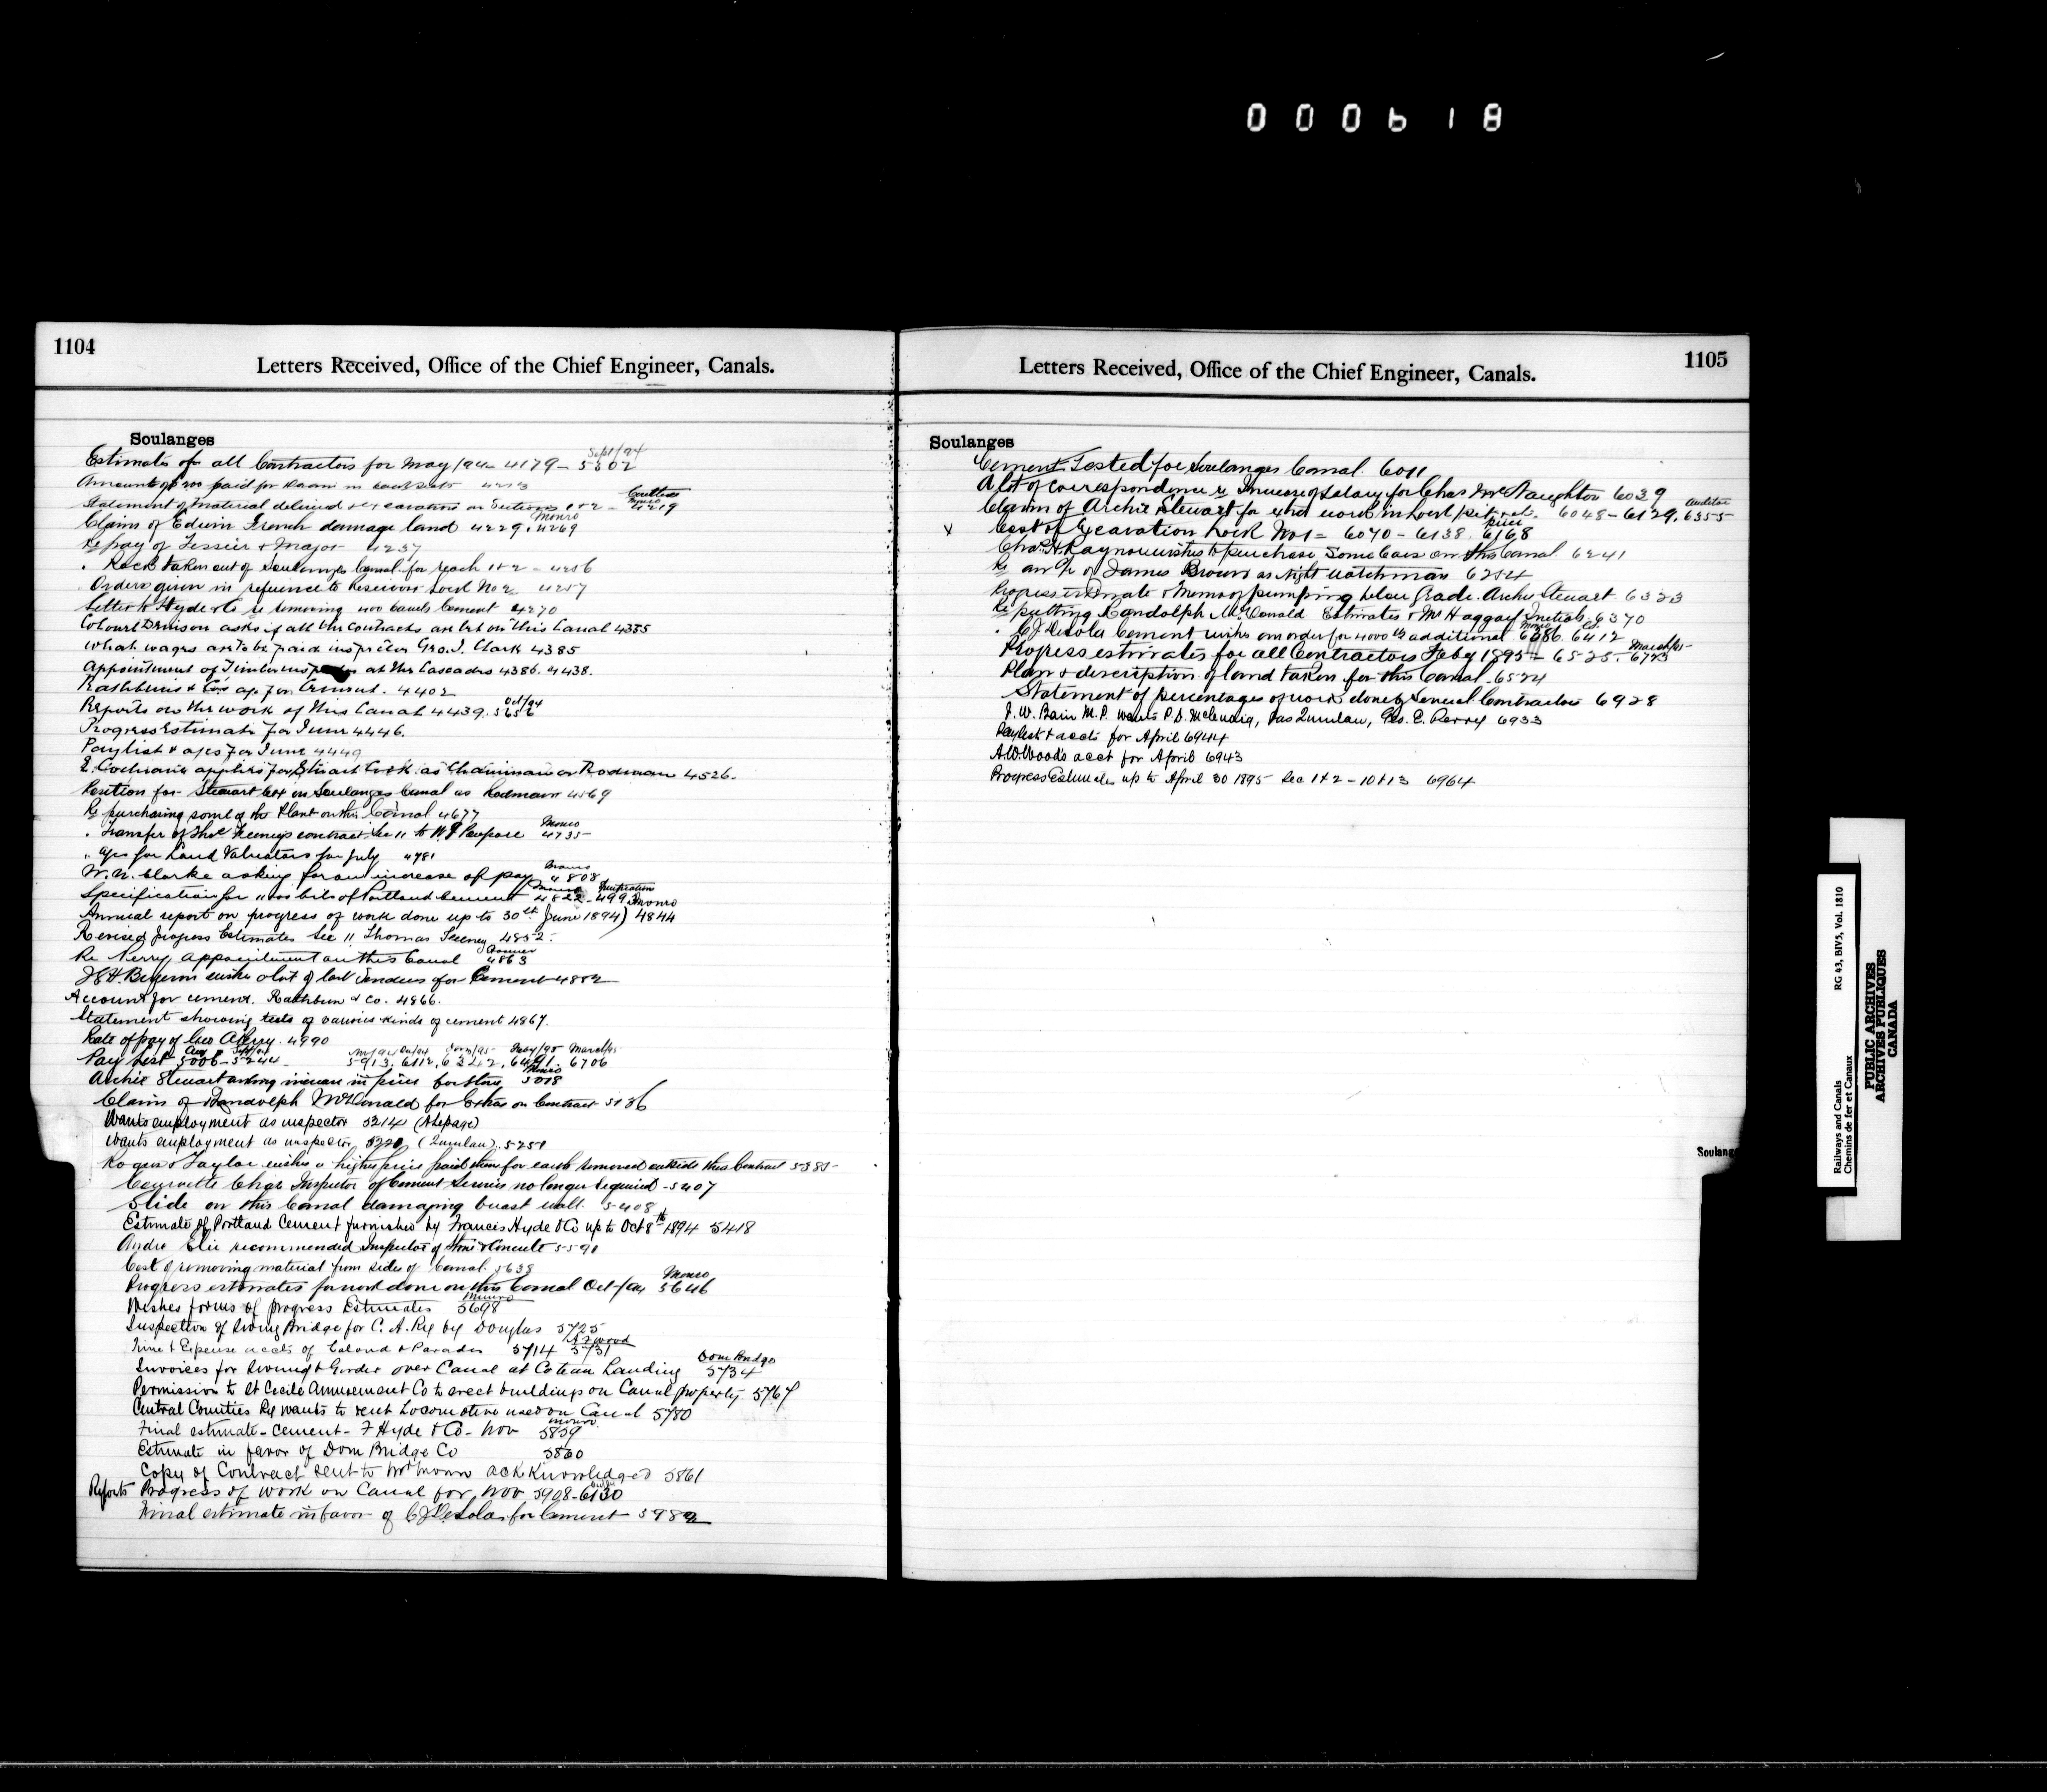 000618
1104
Letters Received, Office of the Chief Engineer, Canals.
Soulanges
Sept/94
Estimates of all Contractors for May/94 4179 - 5302
Amount of paid for
Statement of material delivered excavation on Sections 1 + 2 - 4219
Monro
Claims of Edwin French damage land 4229. 4269
Re pay of Tessier & Major 4237
. Rock taken out of Soulanges Canal for reach 1 + 2 - 4256
. Orders given in reference to Lock No 2 4257
Letter to Hyde & Co re removing 400 barrels Cement 4270
Colonel Denison asks if all the contracts are let on this Canal 4335
What wages are to be paid inspector Geo. I. Clark 4385
Appointment of Timber at the Cascades 4386. 4438.
Rathbuns & Co's a/c for Cement. 4402
Oct/94
Reports on the work of this Canal 4439. 5656
Progress Estimate for June 4446.
Paylist & a/cs for June 4449
E. Cochrane applies for Stuart Cook as Chainman or Rodman 4526.
Position for Stewart on Soulanges Canal as Rodman 4569
Re purchasing some of the Plant on this Canal 4677
Monro
. Transfer of Thos Feeney's contract Sec 11 to W J Poupore 4735
" a/cs for Land Valuators for July 4781
Monro
W. N. Clarke asking for an increase of pay 4808
Specification for brls of Portland Cement 4822 - 499
Monro
Annual report on progress of work done up to 30th June 1894) 4844
Revised Progress Estimates Sec 11 Thomas Feeney 4852.
Re Perry appointment on this Canal 4863
wishes a list of last tenders for Cement 4882
Account for cement. Rathbun & Co. 4866.
Statement showing tests of various kinds of cement 4867.
Rate of pay of Geo A Perry. 4990
Aug Sept/94 Nov/94 Jany/95 Feby/95 March/95
Pay List 5006 - 5244 - 5913. 6112. 6322. 6491. 6706
Monro
Archie Stewart asking increase in price for stone 5018
Claim of Randolph McDonald for Extras on Contract 5136
Wants employment as inspector 5214 (A Lepage)
Wants employment as inspector 5220 (Quinlan). 5251
Rogers & Taylor wishes a higher price paid them for earth removed outside their Contract 5385
Chas Inspector of Cement Services no longer required - 5407
Slide on this Canal damaging breast wall. 5408
Estimate of Portland Cement furnished by Francis Hyde & Co up to Oct 8th 1894 5418
Andre Elie recommended Inspector of Stone & Concrete 5591
Cost of removing material from sides of Canal. 5638
Monro
Progress estimates for work done on this Canal Oct/94 5646
Monro
Wishes forms of progress Estimates 5698
Inspection of Swing Bridge for C. A. Ry by Douglas 5725
Time & Expense accts of & 5714 5731
Dom Bridge
Invoices for Swing & Girder over Canal at Coteau Landing 5734
Permission to St Cecile Amusement Co to erect buildings on Canal property 5767
Central Counties Ry wants to rent Locomotive used on Canal 5780
Monro
Final estimate - cement - F Hyde & Co - Nov 5859
Estimate in favor of Dom Bridge Co 5860
Copy of Contract sent to Mr Monro acknowledged 5861
Reports Progress of work on Canal for Nov 5908 - 6130
Final estimate in favor of C J DeSola for Cement 5982
1105
Letters Received, Office of the Chief Engineer, Canals.
Soulanges
Cement Tested for Soulanges Canal. 6011
A lot of correspondence re Increase of Salary for Chas McNaughton 6039
Auditor
Claim of Archie Stewart for extra work in Lock pit 6048 - 6129. 6355
price
x Cost of Excavation Lock No 1 = 6070 - 6138. 6168
Chas. A. Raynor wishes to purchase Some Cars on this Canal 6241
Re of James Brown as Night watchman 6254
Progress Estimate & Memo of pumping below Grade. Archie Stewart 6323
Re putting Randolph McDonald Estimates & Mr Haggas Initials. 6370
Monro
. C J DeSola Cement wishes an order for 4000 additional 6386. 6412
March/95
Progress estimates for all Contractors Feby 1895 - 6525. 6723
Plan & description of land taken for this Canal - 6574
Statement of percentages of work done by several Contractors 6928
J. W. Bain M.P. wants P. D. McCuaig, Jas Quinlan, Geo. E. Perry 6933
Paylist & accts for April 6944
A. W. Wood's acct for April 6943
Progress Estimates up to April 30 1895 Sec 1 + 2 - 10 + 13 6964
Soulang
Railways and Canals
Chemins de fer et Canaux
RG 43, BIV5, Vol. 1810
PUBLIC ARCHIVES
ARCHIVES PUBLIQUES
CANADA